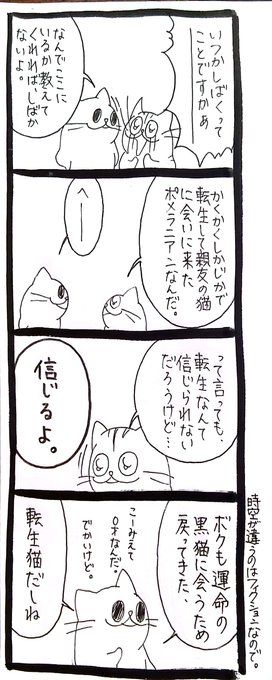 いつかしばくって
ことですかぁ
なんでここに
いるか教えて
くれればしばか
ないよ。
かくかくしかじかで
転生して親友の猫
に会いに来た
ポメラニアンなんだ。
へー
って言っても、
転生なんて
信じられない
だろうけど…
信じるよ。
ボクも運命の
黒猫に会うため
戻ってきた、
こーみえて
0才なんだ。
でかいけど。
転生猫だしね
時空が違うのはフィクションなので。